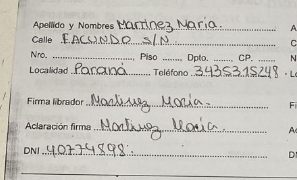 Apellido y Nombres Martínez María.
Calle FACUNDO S/N
Nro. Piso Dpto. CP.
Localidad Paraná Teléfono 3435315248
Firma librador Martínez María.
Aclaración firma Martínez María.
DNI 40774898.